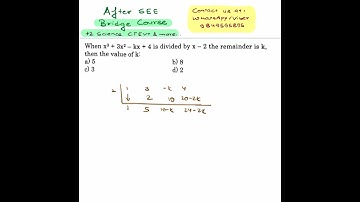 After SEE
Bridge Course
+2 Science, CTEVT & more.
Contact us at:
WhatsApp/viber
When x³ + 3x² – kx + 4 is divided by x – 2 the remainder is k,
then the value of k:
a) 5 b) 8
c) 3 d) 2
2 1 3 -k 4
↓ 2 10 20-2k
1 5 10-k 24-2k